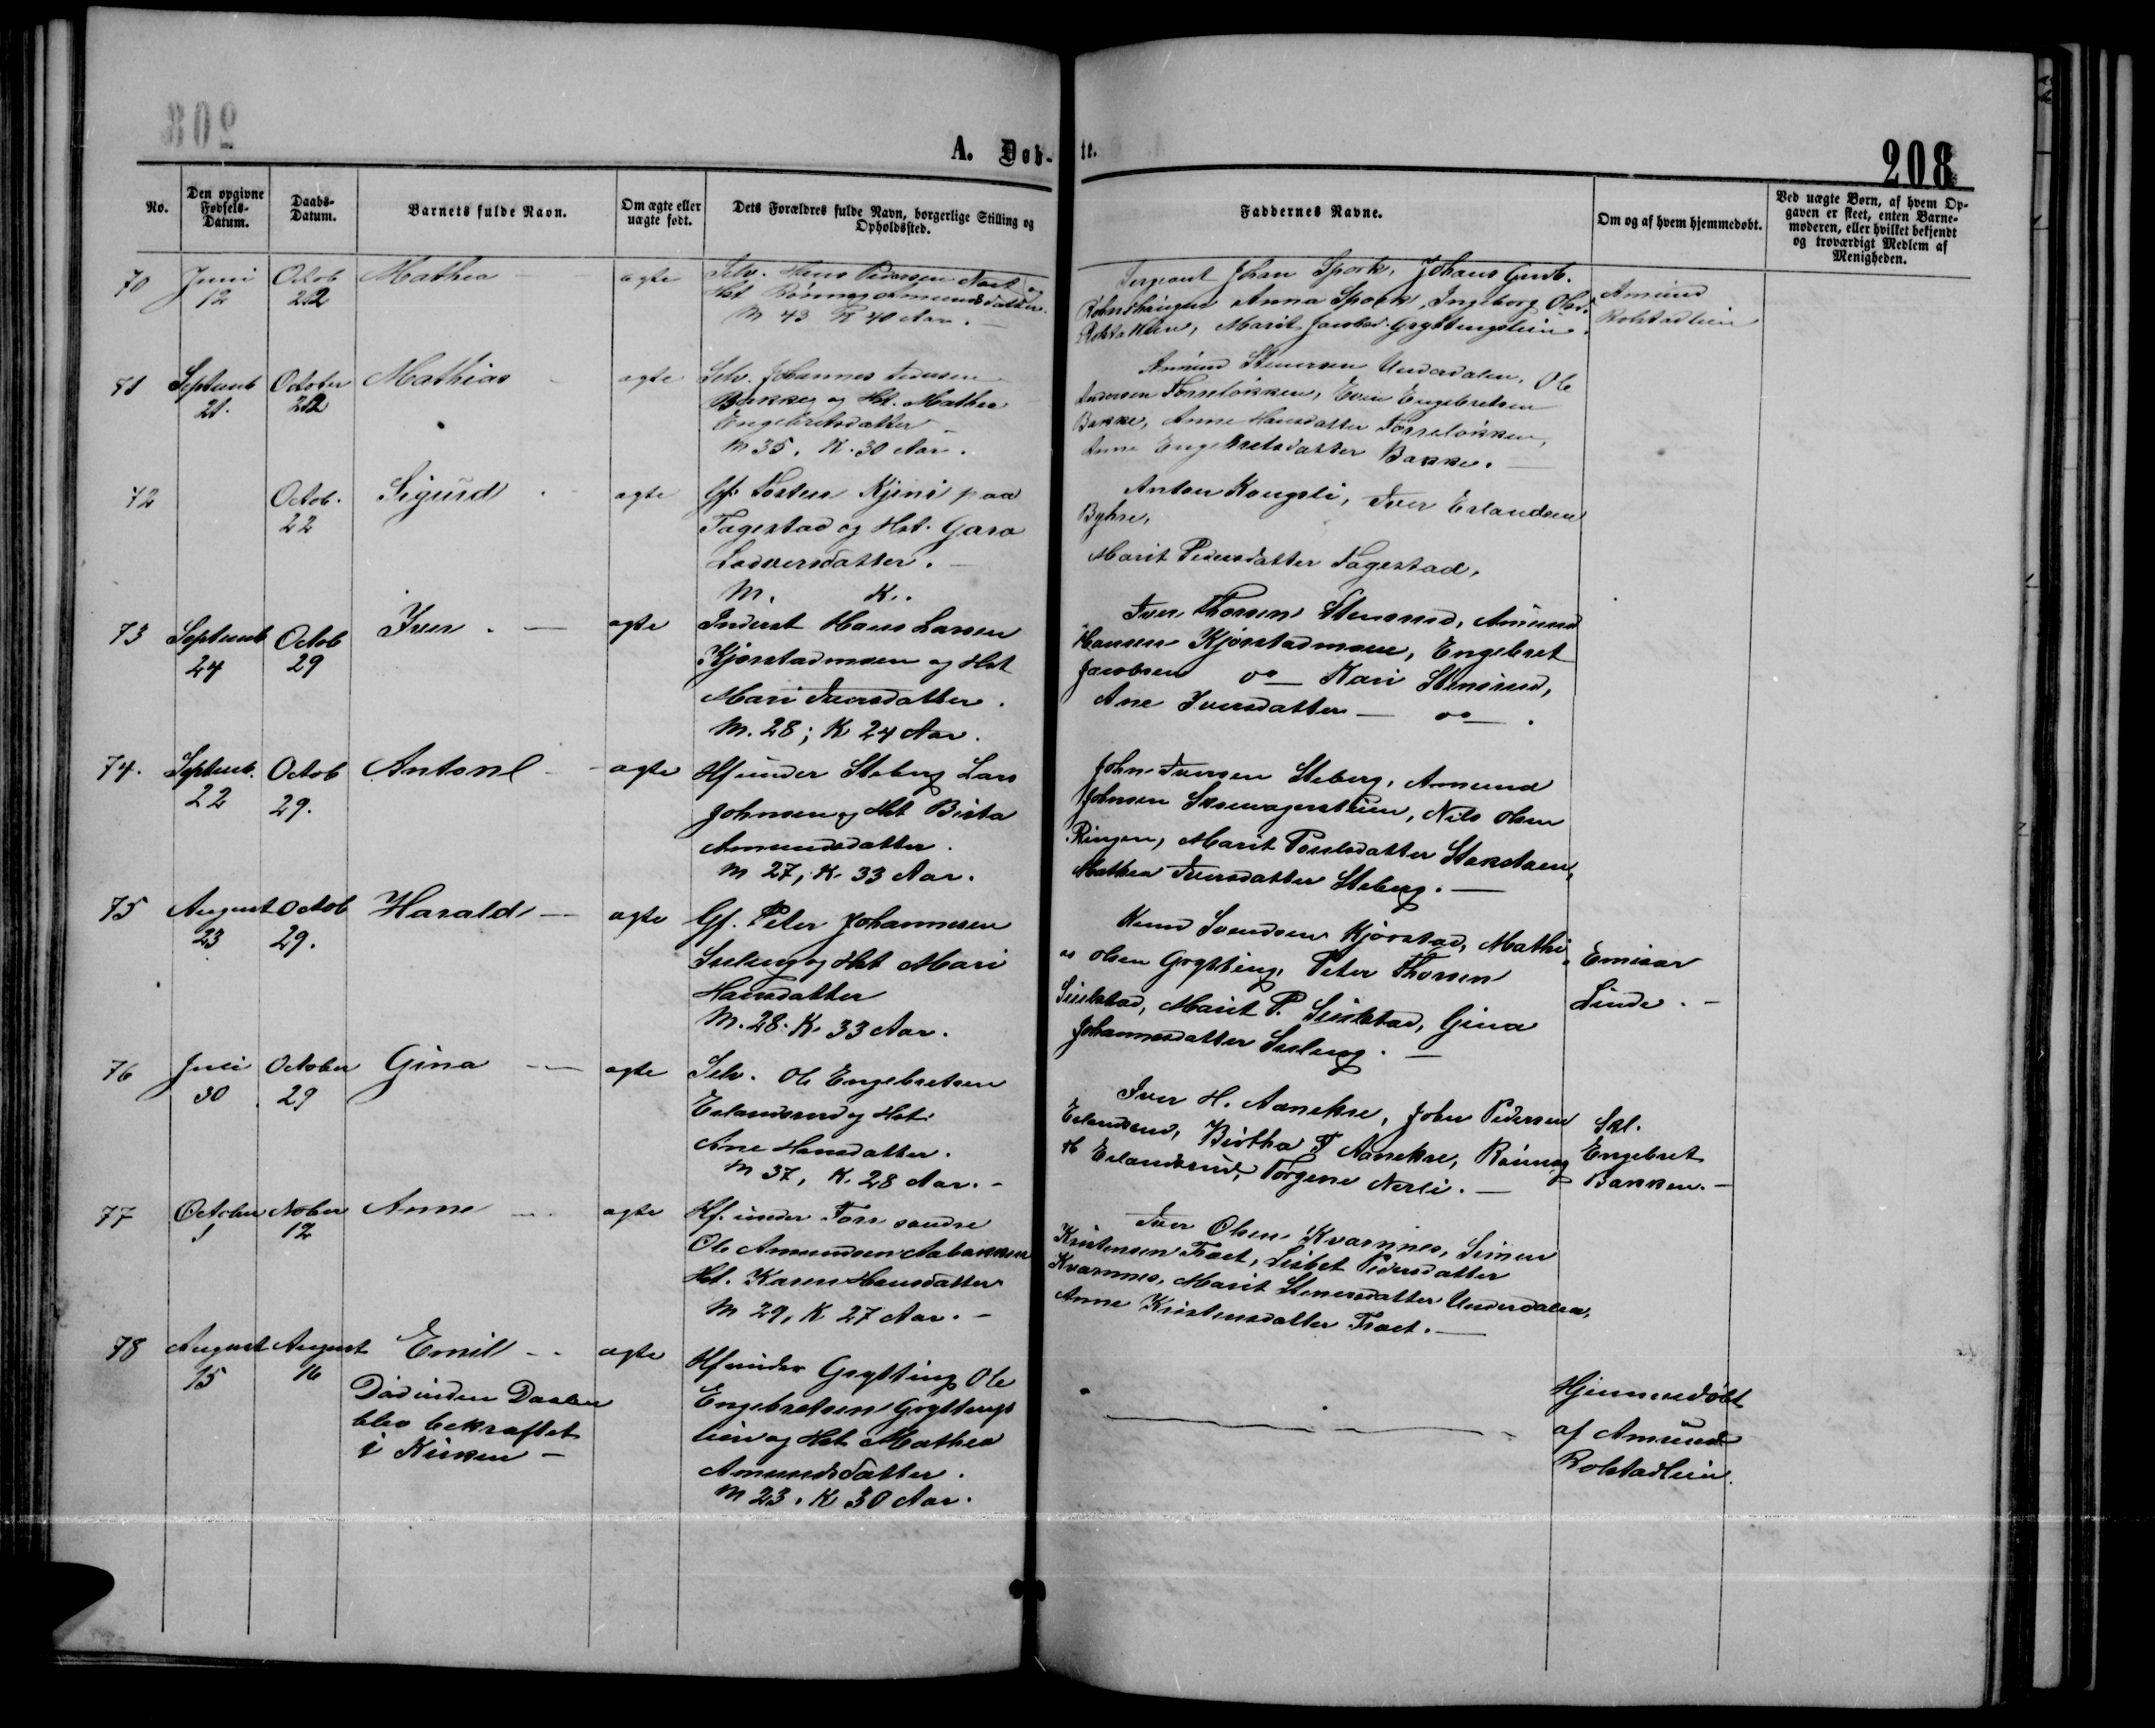 208
A. Døb-
te.
208
No.
Den opgivne Fødsels-Datum.
Daabs-Datum.
Barnets fulde Navn.
Om ægte eller uægte født.
Dets Forældres fulde Navn, borgerlige Stilling og Opholdssted.
Faddernes Navne.
Om og af hvem hjemmedøbt.
Ved uægte Børn, af hvem Opgaven er skeet, enten Barnemoderen, eller hvilket bekjendt og troværdigt Medlem af Menigheden.
70
Juni 12
Octob 22
Mathea
ægte
Selv. Hans Pedersen
og
Hst Rønnog Amundsdatter.
M 43 K 40 Aar.
Sergeant Johan Spørk, Johans Gudb.
Anna Spørk, Ingeborg Olsd.
Marit Jacobsd. Gryttingslien.
Amund
Rolstadlien
71
Septemb 21.
October 22
Mathias
ægte
Selv. Johannes
Bakke og Hst. Mathea
Engebretsdatter
M 35, K. 30 Aar.
Amund Stenersen Underdalen, Ole
Andersen Torseløkken, Even Engebretsen
Bakke, Anne Hansdatter Torseløkken,
Anne Engebretsdatter Bakke.
72
Octob. 22
Sigurd
ægte
Gf. Tosten Kjeni paa
Fagestad og Hst. Gara
Lodversdatter.
M. K..
Anton Kongsli, Iver Erlandsen
Byhre,
Marit Pedersdatter Fagestad.
73
Septemb 24
Octob 29
Iver
ægte
Inderst Hans Larsen
Kjørstadmoen og Hst
Mari Iversdatter.
M. 28; K 24 Aar.
Iver Thorsen Stensrud, Amund
Hansen Kjørstadmoen, Engebret
Jacobsen oo Kari Stensrud,
Ane Iversdatter — oo —.
74.
Septemb. 22
Octob 29.
Antonl
ægte
Hf under Steberg Lars
Johnsen og Hst Birta
Amundsdatter.
M 27, K. 33 Aar.
John Iversen Steberg, Amund
Johnsen Skrenagerstuen, Nils Olsen
Ringen, Marit Poulsdatter Stokdaen,
Mathea Iversdatter Steberg.
75
August 23
Octob 29.
Harald
ægte
Gf. Peter Johannesen
Sulung og Hst Mari
Hansdatter
M. 28. K. 33 Aar.
Knud Svendsen Kjørstad, Mathi
as Olsen Grytting, Peter Thorsen
Siulstad, Marit P. Siulstad, Gina
Johannesdatter Sulung.
Emisar
Linde.
76
Juli 30
October 29
Gina
ægte
Selv. Ole Engebretsen
Erlandsrud og Hst.
Ane Hansdatter.
M 37, K. 28 Aar.
Iver H. Aanekre, John Pedersen
Erlandsrud, Birtha T Aanekre, Rønnog
H Erlandsrud, Torgine Nerli.
Skl.
Engebret
Bakken.
77
October 1
Nober 12
Anne
ægte
Hf. under Fors søndre
Ole Amundsen Aabakken
Hst. Karen Hansdatter
M 29, K 27 Aar.
Iver Olsen Kvarnnes, Simen
Kristensen Troet, Lisbet Pedersdatter
Kvarnnes, Marit Stenersdatter Underdalen,
Anne Kristensdatter Troet.
78
August 15
August 16
Emil
Død inden Daaben
blev bekræftet
i Kirken
ægte
Hf under Grytting Ole
Engebretsen Gryttings
lien og Hst Mathea
Amundsdatter.
M 23, K 30 Aar.
Hjemmedøbt
af Amund
Rolstadlien.